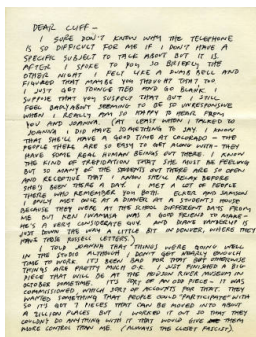 DEAR CLIFF –
I SURE DON'T KNOW WHY THE TELEPHONE
IS SO DIFFICULT FOR ME IF I DON'T HAVE A
SPECIFIC SUBJECT TO TALK ABOUT BUT IT IS.
AFTER I SPOKE TO YOU SO BRIEFLY THE
OTHER NIGHT I FELT LIKE A DUMB BELL AND
FIGURED THAT MAYBE YOU THOUGHT THAT TOO.
I JUST GET TONGUE TIED AND GO BLANK. I
SUPPOSE THAT YOU SUSPECT THAT BUT I STILL
FEEL BAD ABOUT SEEMING TO BE SO UNRESPONSIVE
WHEN I REALLY AM SO HAPPY TO HEAR FROM
YOU AND JOANNA. (AT LEAST WHEN I TALKED TO
JOANNA I DID HAVE SOMETHING TO SAY. I KNOW
THAT SHE'LL HAVE A GOOD TIME AT COLORADO – THE
PEOPLE THERE ARE SO EASY TO GET ALONG WITH – THEY
HAVE SOME REAL HUMAN BEINGS OUT THERE. I KNOW
THE KIND OF TREPIDATION THAT SHE MUST BE FEELING
BUT SO MANY OF THE STUDENTS OUT THERE ARE SO OPEN
AND RECEPTIVE THAT I KNOW SHE'LL RELAX BEFORE
SHE'S BEEN THERE A DAY. I MET A LOT OF PEOPLE
THERE WHO REMEMBER YOU BOTH. ELKER AND SAMSON
I ONLY MET ONCE AT A DINNER AT A STUDENT'S HOUSE
BECAUSE THEY WERE AT THE SCHOOL DIFFERENT DAYS FROM
ME BUT KEN IWAMASA WAS A GOOD FRIEND TO MAKE –
HE'S A VERY CONSIDERATE GUY. AND DIANE VANDERLIP IS
JUST DOWN THE WAY A LITTLE BIT IN DENVER, WHERE THEY
HAVE THOSE RUSSELL LETTERS.)
I TOLD JOANNA THAT THINGS WERE GOING WELL
IN THE STUDIO ALTHOUGH I DON'T GET NEARLY ENOUGH
TIME TO WORK. IT'S BEEN BAD FOR THAT BUT OTHERWISE
THINGS ARE PRETTY MUCH OK. I JUST FINISHED A BIG
PIECE THAT WILL BE AT THE HUDSON RIVER MUSEUM IN
OCTOBER SOMETIME. IT'S SORT OF AN ODD PIECE – IT WAS
COMMISSIONED, WHICH SORT OF ACCOUNTS FOR THAT. THEY
WANTED SOMETHING THAT PEOPLE COULD "PARTICIPATE" WITH
SO IT'S GOT 7 PIECES THAT CAN BE MOVED INTO ABOUT
A ZILLION PLACES BUT I WORKED IT OUT SO THAT THEY
COULDN'T DO ANYTHING WITH IT THAT WOULD GIVE THEM
MORE CONTROL THAN ME. (ALWAYS THE CLOSET FASCIST).